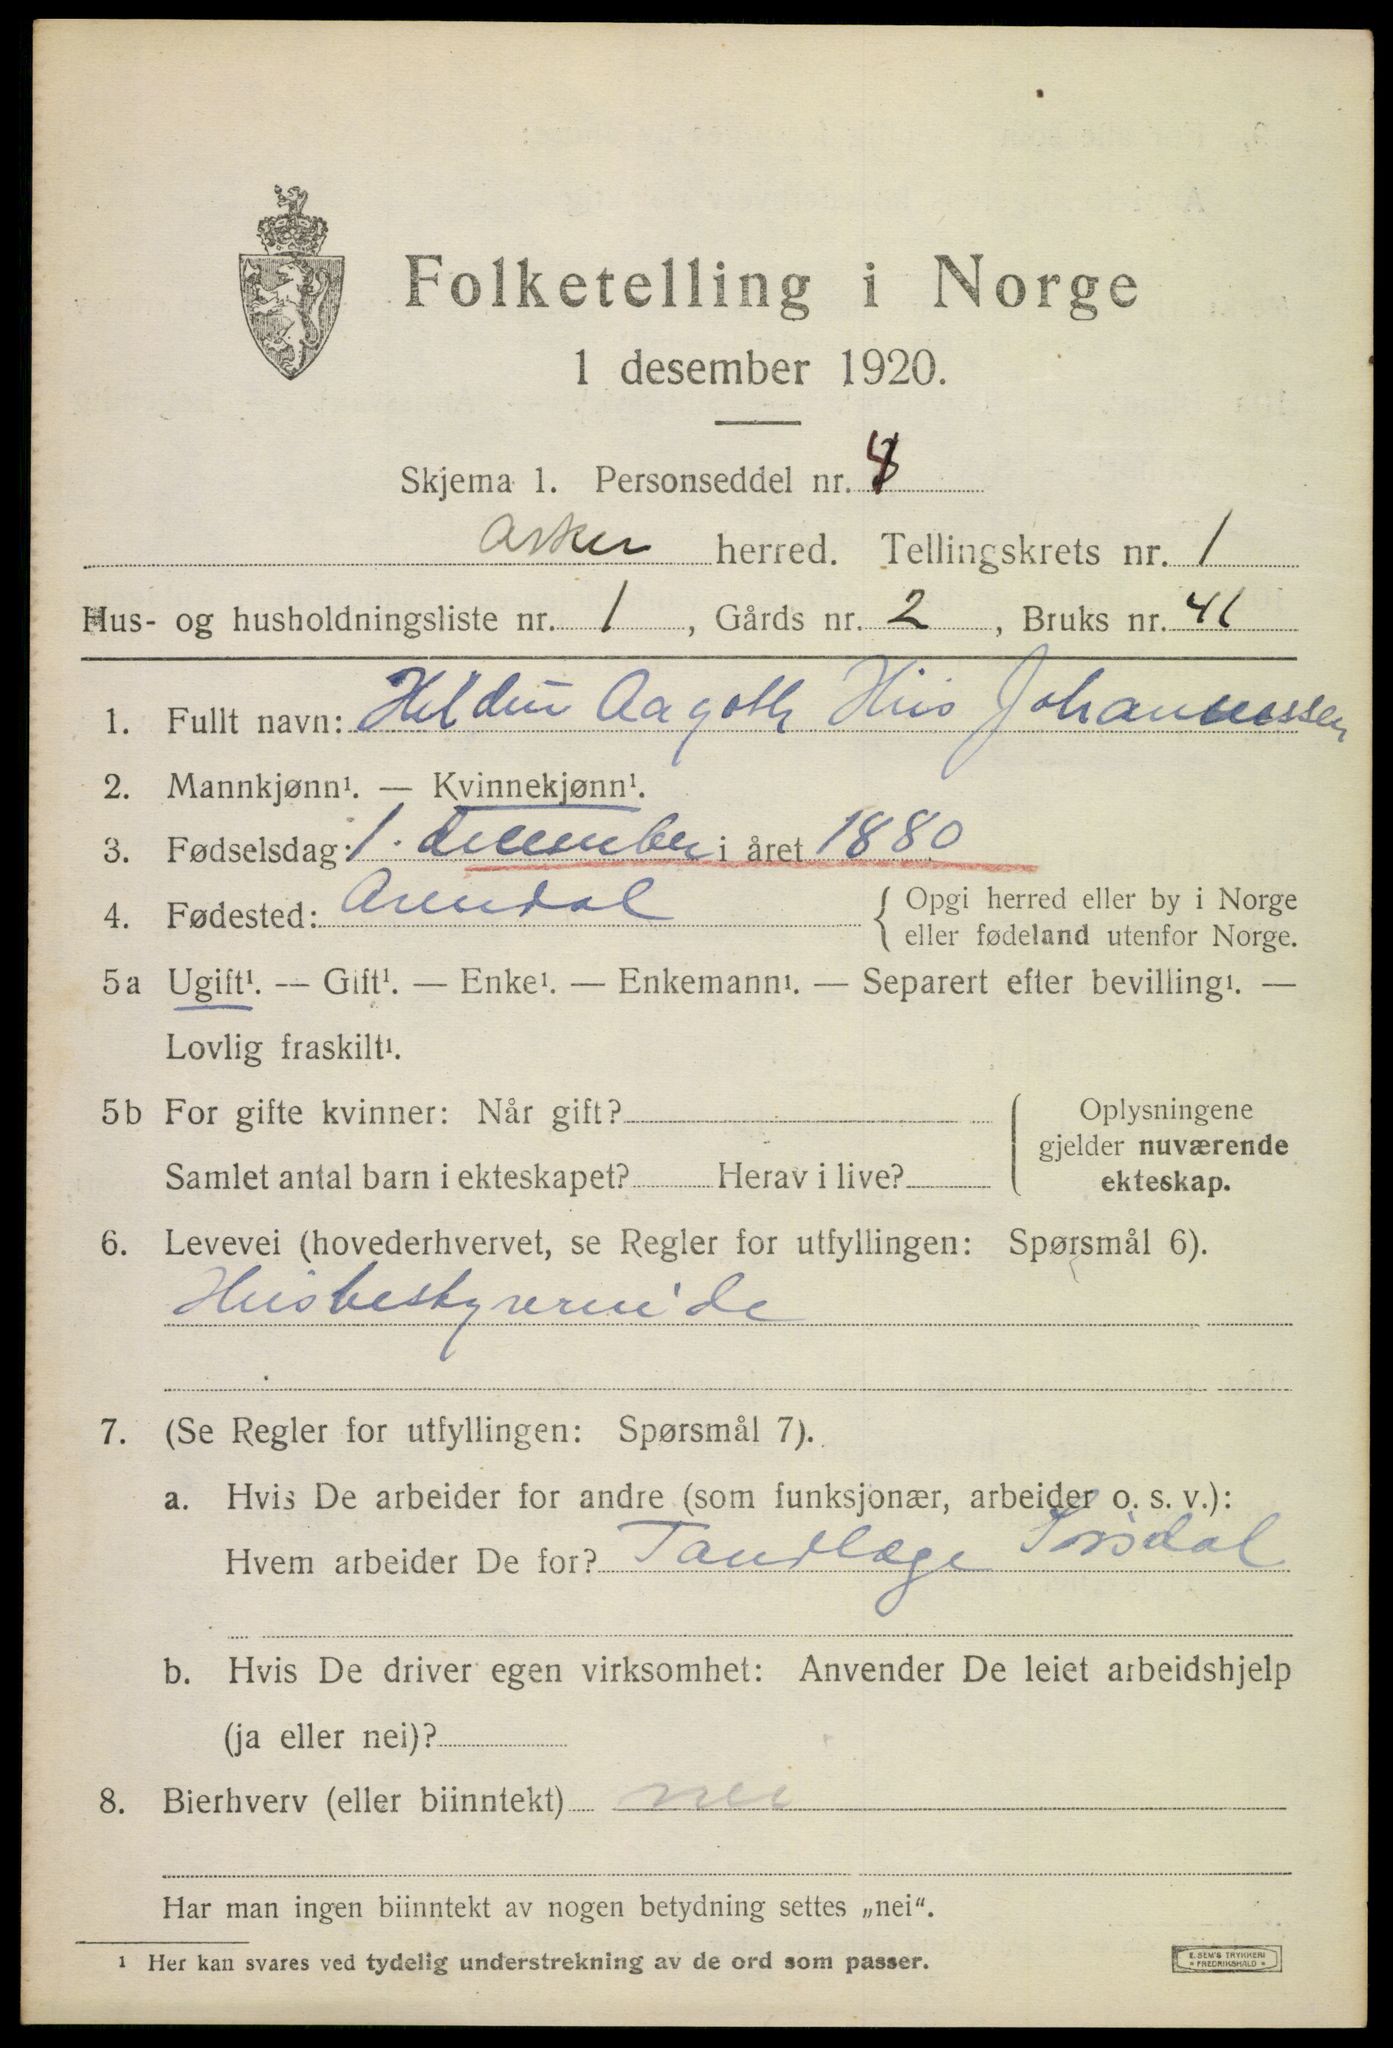 Folketelling i Norge
1 desember 1920.
Skjema 1. Personseddel nr.
Asker herred. Tellingskrets nr. 1
Hus- og husholdningsliste nr. 1, Gårds nr. 2, Bruks nr. 41
1. Fullt navn: Hildur Aagoth Hiis Johannessen
2. Mannkjønn¹. — Kvinnekjønn¹.
3. Fødselsdag: 1. december i året 1880
4. Fødested: Arendal { Opgi herred eller by i Norge
eller fødeland utenfor Norge.
5a Ugift¹. — Gift¹. — Enke¹. — Enkemann¹. — Separert efter bevilling¹. —
Lovlig fraskilt¹.
5b For gifte kvinner: Når gift?
Samlet antal barn i ekteskapet? Herav i live?
Oplysningene
gjelder nuværende
ekteskap.
6. Levevei (hovederhvervet, se Regler for utfyllingen: Spørsmål 6).
Husbestyrerinde
7. (Se Regler for utfyllingen: Spørsmål 7).
a. Hvis De arbeider for andre (som funksjonær, arbeider o. s. v.):
Hvem arbeider De for? Tandlæge Sørsdal
b. Hvis De driver egen virksomhet: Anvender De leiet arbeidshjelp
(ja eller nei)?
8. Bierhverv (eller biinntekt) nei
Har man ingen biinntekt av nogen betydning settes „nei“.
¹ Her kan svares ved tydelig understrekning av de ord som passer.
E. SEM'S TRYKKERI
* FREDRIKSHALD *